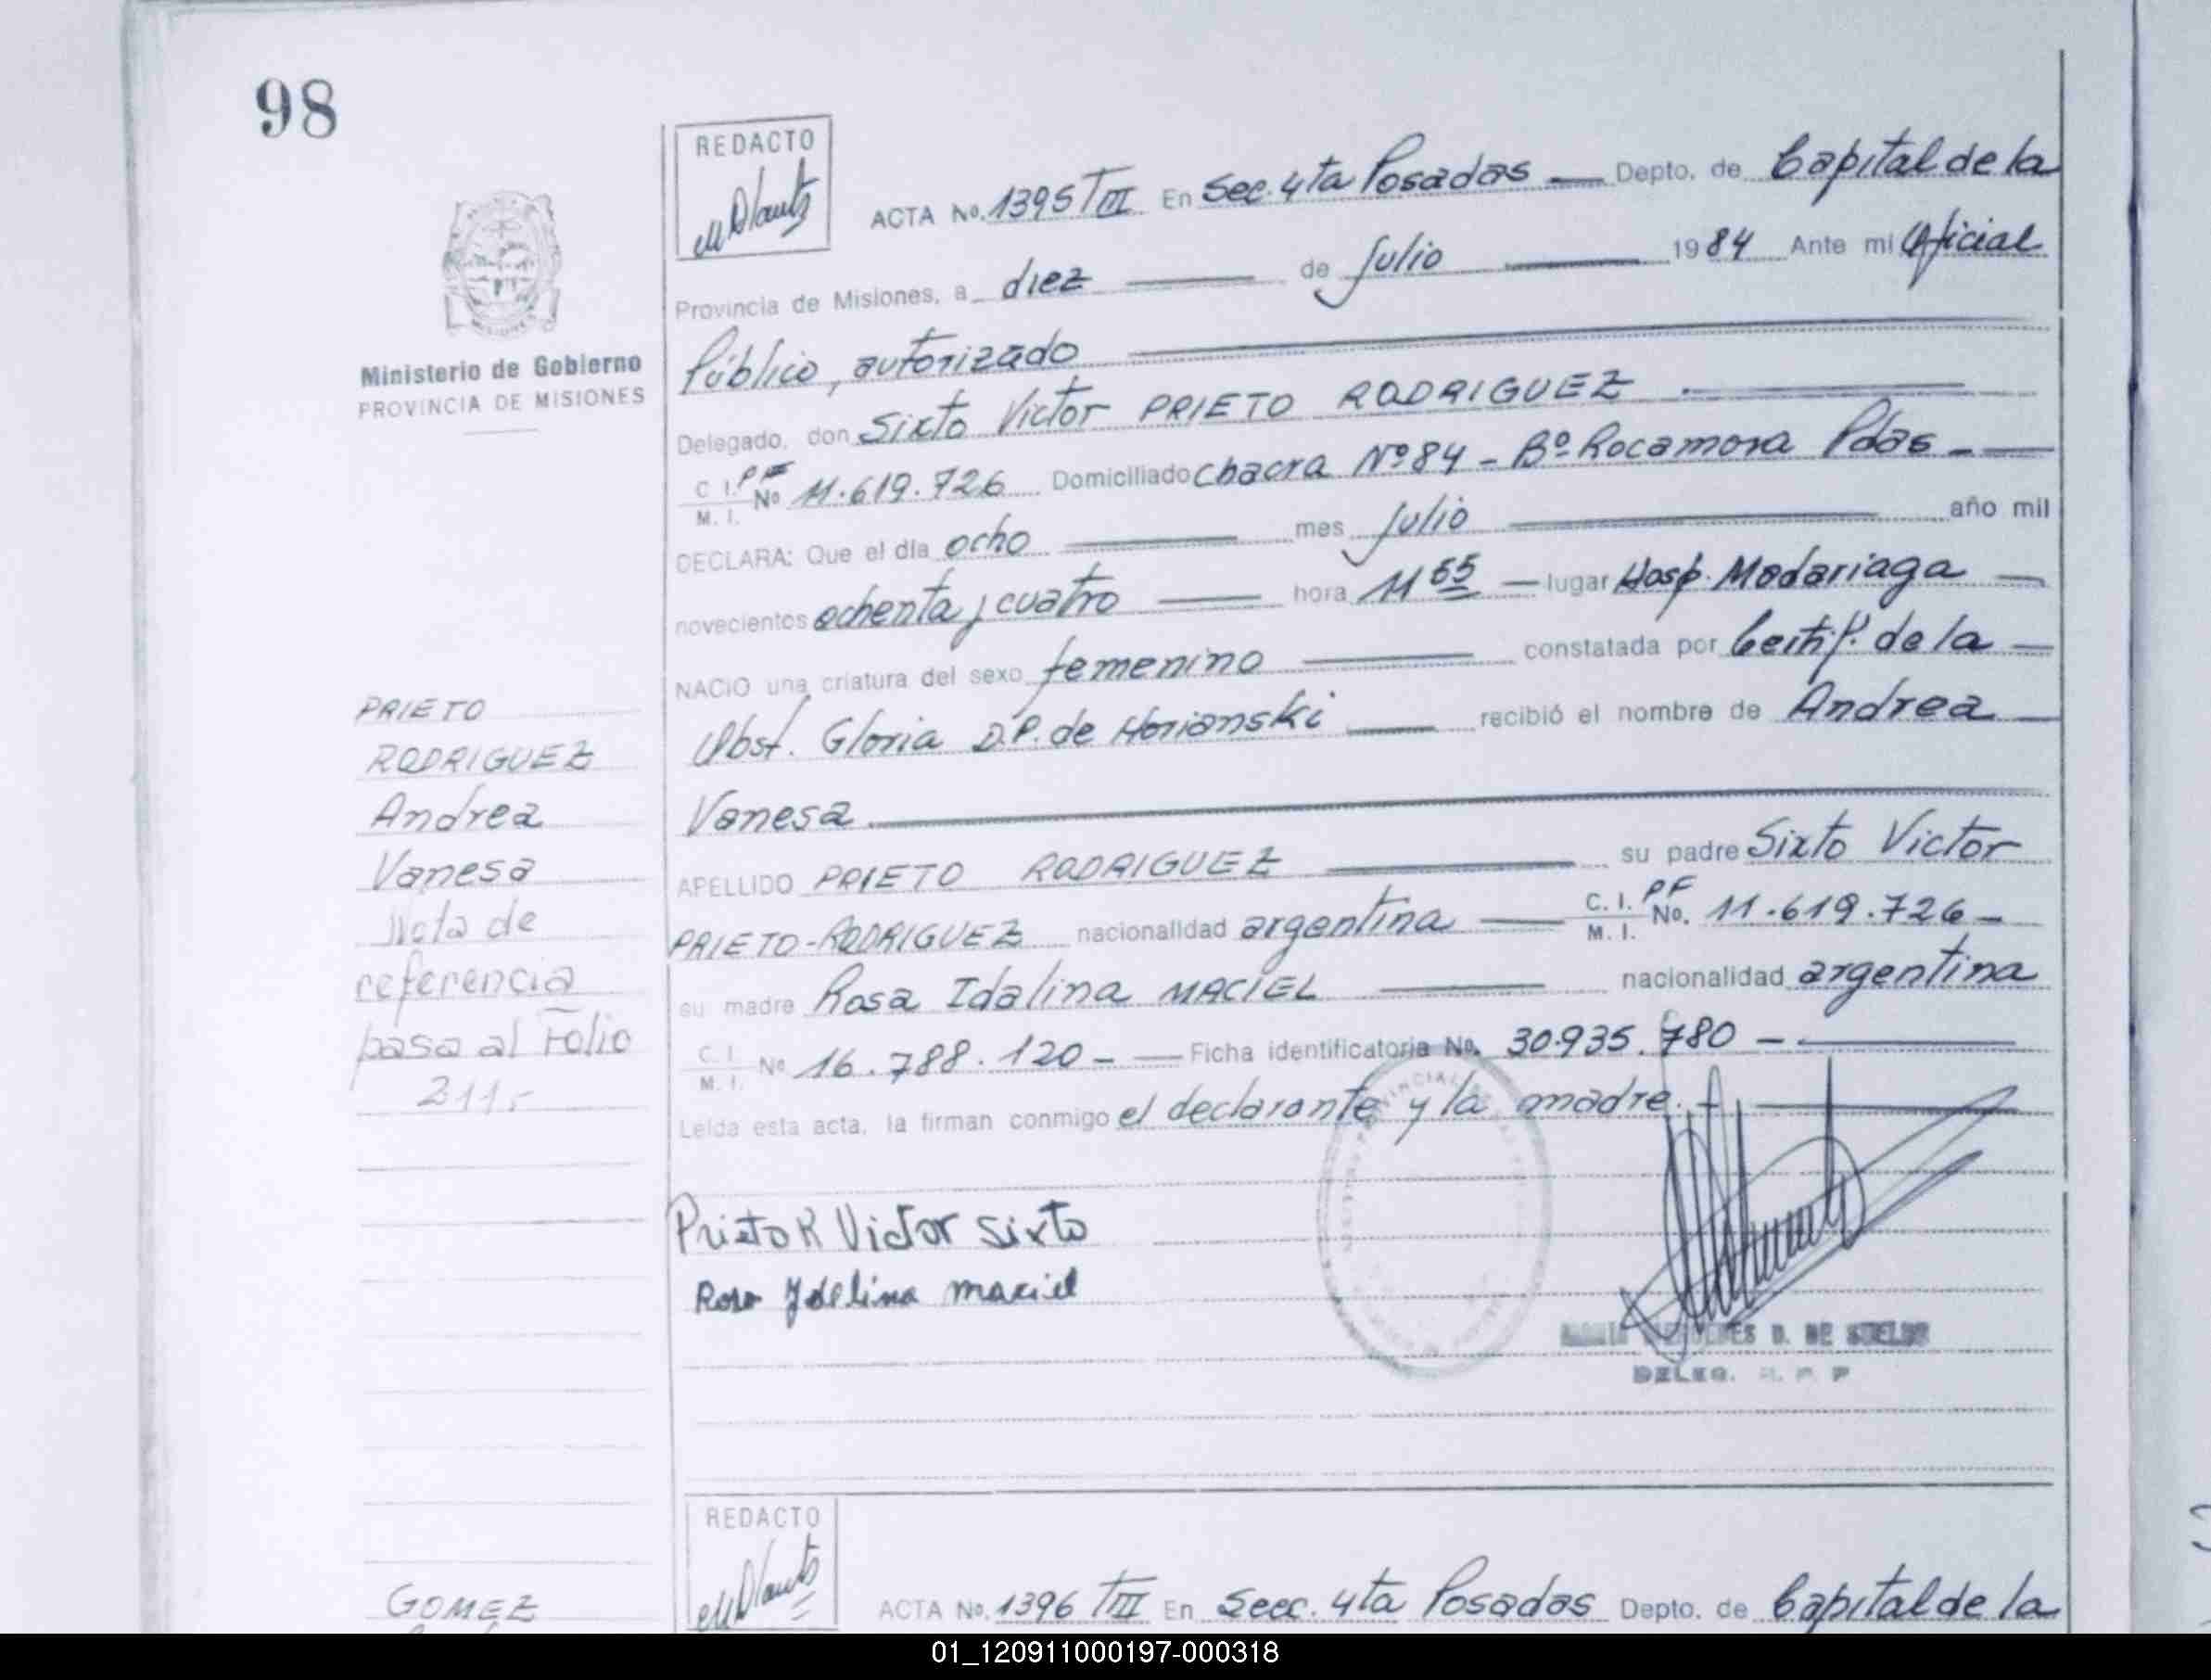 98
Ministerio de Gobierno
PROVINCIA DE MISIONES
PRIETO
RODRIGUEZ
Andrea
Vanesa
Nota de
referencia
pasa al Folio
211.-
GOMEZ
REDACTO
ACTA No. 1395 TIII En Sec. 4ta Posadas — Depto. de Capital de la
Provincia de Misiones, a diez — de Julio — 1984 Ante mi Oficial
Público, autorizado
Delegado, don Sixto Victor PRIETO RODRIGUEZ
C.I. PF M.I. No 11.619.726 Domiciliado Chacra Nº 84 - Bº Rocamora Pdas -
DECLARA: Que el día ocho — mes Julio — año mil
novecientos ochenta y cuatro — hora 11 55 — lugar Hosp. Madariaga —
NACIO una criatura del sexo femenino — constatada por Certif. de la —
Obst. Gloria D.P. de Horianski — recibió el nombre de Andrea —
Vanesa
APELLIDO PRIETO RODRIGUEZ — su padre Sixto Victor
PRIETO-RODRIGUEZ nacionalidad argentina — C.I. PF M.I. No. 11.619.726 -
su madre Rosa Idalina MACIEL — nacionalidad argentina
C.I. M.I. No 16.788.120 - — Ficha identificatoria No. 30.935.780 -
Leida esta acta, la firman conmigo el declarante y la madre. -
Prieto R Victor Sixto
Rosa Ydelina maciel
D. DE
DELEG. R. P. P
REDACTO
ACTA No. 1396 TIII En Secc. 4ta Posadas Depto. de Capital de la
01_120911000197-000318